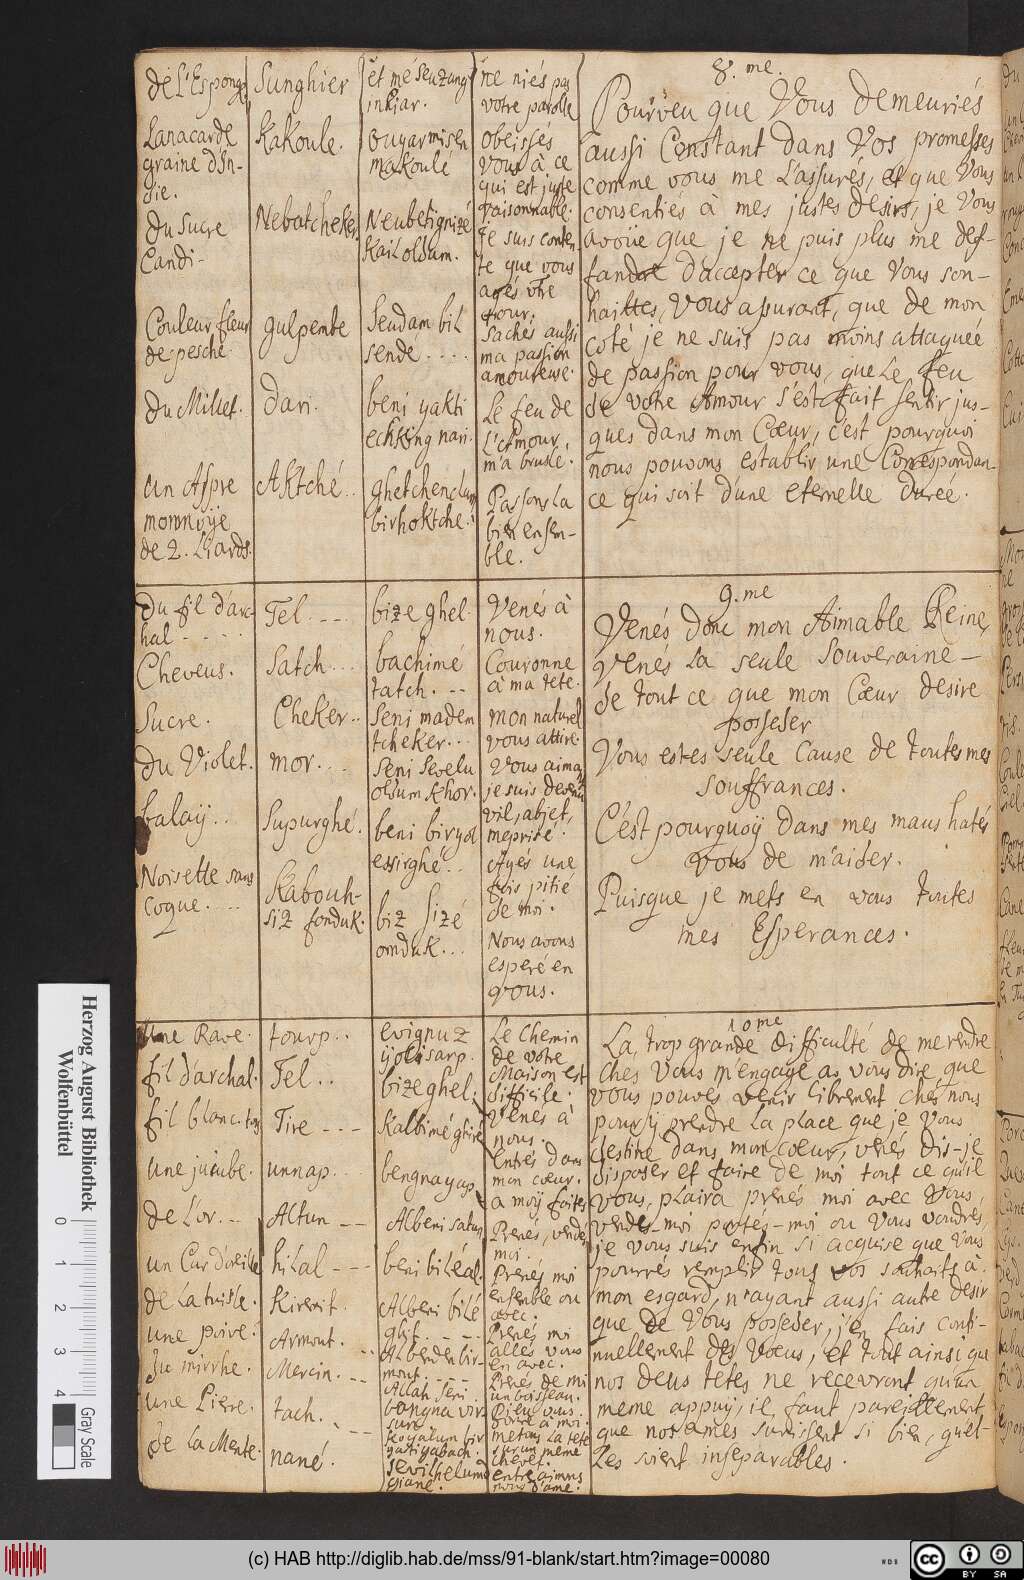 8.me.
de L'Esponge
Sunghier
et mé senzung
inkiar.
ne niés pas
votre parolle
Lanacarde
graine d'In-
die.
Kakoule.
ouyarmisen
makoulé
obéissés
vous à ce
qui est juste
raisonnable.
du Sucre
Candi-
Nebatcheker
Neubetignizé
Kail oldum.
Je suis conten
te que vous
ayés vtre
tour.
Couleur fleur
de pesché.
gulpembe
Sendam bil
sende....
Sachés aussi
ma passion
amoureuse.
du Millet.
dari.
beni yakti
echking nari.
Le feu de
L'Amour,
m'a brulé.
un Aspre
monnoÿe
de 2. Liards.
Aktché..
ghetchenclum
birhoktche.
Passons la
bien ensem-
ble.
Pourveu que Vous demeuriés
aussi Constant dans Vos promesses
comme vous me L'assurés, et que Vous
consenties à mes justes desirs, je Vous
avoüe que je ne puis plus me def-
fandre d'accepter ce que Vous sou-
haittes, Vous assurant, que de mon
coté je ne suis pas moins attaqueé
de passion pour vous, que Le feu
de votre Amour s'est fait sentir jus-
ques dans mon Cœur, c'est pourquoi
nous pouvons establir une Correspondan-
ce qui soit d'une eternelle dureé.
9.me
du fil d'arc
hal-----
Tel.---
bize ghel.
Venés à
nous.
Cheveus.
Satch...
bachimé
tatch.--
Couronne
à ma tete.
Sucre.
Cheker..
Seni madem
tcheker...
mon naturel
vous attire.
du Violet.
mor....
Seni sevelu
oldum khor.
Vous aimant
je suis devenu
vil, abjet,
meprisé.
balaÿ..
Supurghé.
beni biryol
essirghé..
Ayés une
fois pitié
de moi.
Noisette sans
coque....
Kabouh-
siz fonduk.
biz sizé
omduk...
Nous avons
esperé en
vous.
Venés donc mon Aimable Reine,
Venés La seule Souveraine-
de tout ce que mon Cœur desire
posseder
Vous estes seule Cause de toutes mes
souffrances.
C'est pourquoÿ dans mes maus hatés
vous de m'aider.
Puisque je mets en vous toutes
mes Esperances.
10me
Une Rave.
tourp..
evignuz
ÿolisarp.
Le Chemin
de votre
Maison est
difficile.
fil d'archal.
Tel..
bizeghel,
Venés à
nous.
fil blanc
Tire---
Kalbimé ghiré
Entrés dans
mon cœur.
Une jujube.
unnap.
bengnayap
a moÿ faites
de L'or.--
Altun--
Albeni satun
Prenés, vendés
moi.
un Cur d'oreille
hilal---
beni biléal.
Prenés moi
ensemble ou
avec.
de La tuisle.
Kiremit.
Alberi bilé
ghit.---
Prenés moi
allés vous
en avec.
une poire.
Armout.
Albenden bir-
mout.---
Prenés de mi
un boisseau.
du mirrhe.
Mercin.--
Allah seni
bangna vir
sun.
Dieu vous
donne à moi.
une Pierre.
tach.
--
koyalum bir
yastigabach.
mettons la tete
sur un meme
chevet.
de La Mente.
nané.
Sevilhelum
giane.
entre aimons
nous d'ame.
La trop grande difficulté de me rendre
ches Vous m'engage as vous dire, que
vous pouvés venir librement ches nous
pour ÿ prendre La place que je Vous
destine dans mon cœur, venés dis-je
disposer et faire de moi tout ce qu'il
vous, plaira prenés moi avec Vous,
vendes-moi portés-moi ou Vous voudres,
je vous suis enfin si acquise que Vous
pourrés remplir tous vos souhaits à
mon esgard, n'ayant aussi autre desir
que de Vous posseder, j'en fais conti-
nuellement des Vœus, et tout ainsi que
nos deus tetes ne recevront qu'un
meme appuÿ, il faut pareillement
que nos ames s'unissent si bien, qu'el-
Les soient inseparables.
Herzog August Bibliothek
Wolfenbüttel
0 1 2 3 4
Gray Scale
(c) HAB http://diglib.hab.de/mss/91-blank/start.htm?image=00080
WDB
cc
BY SA